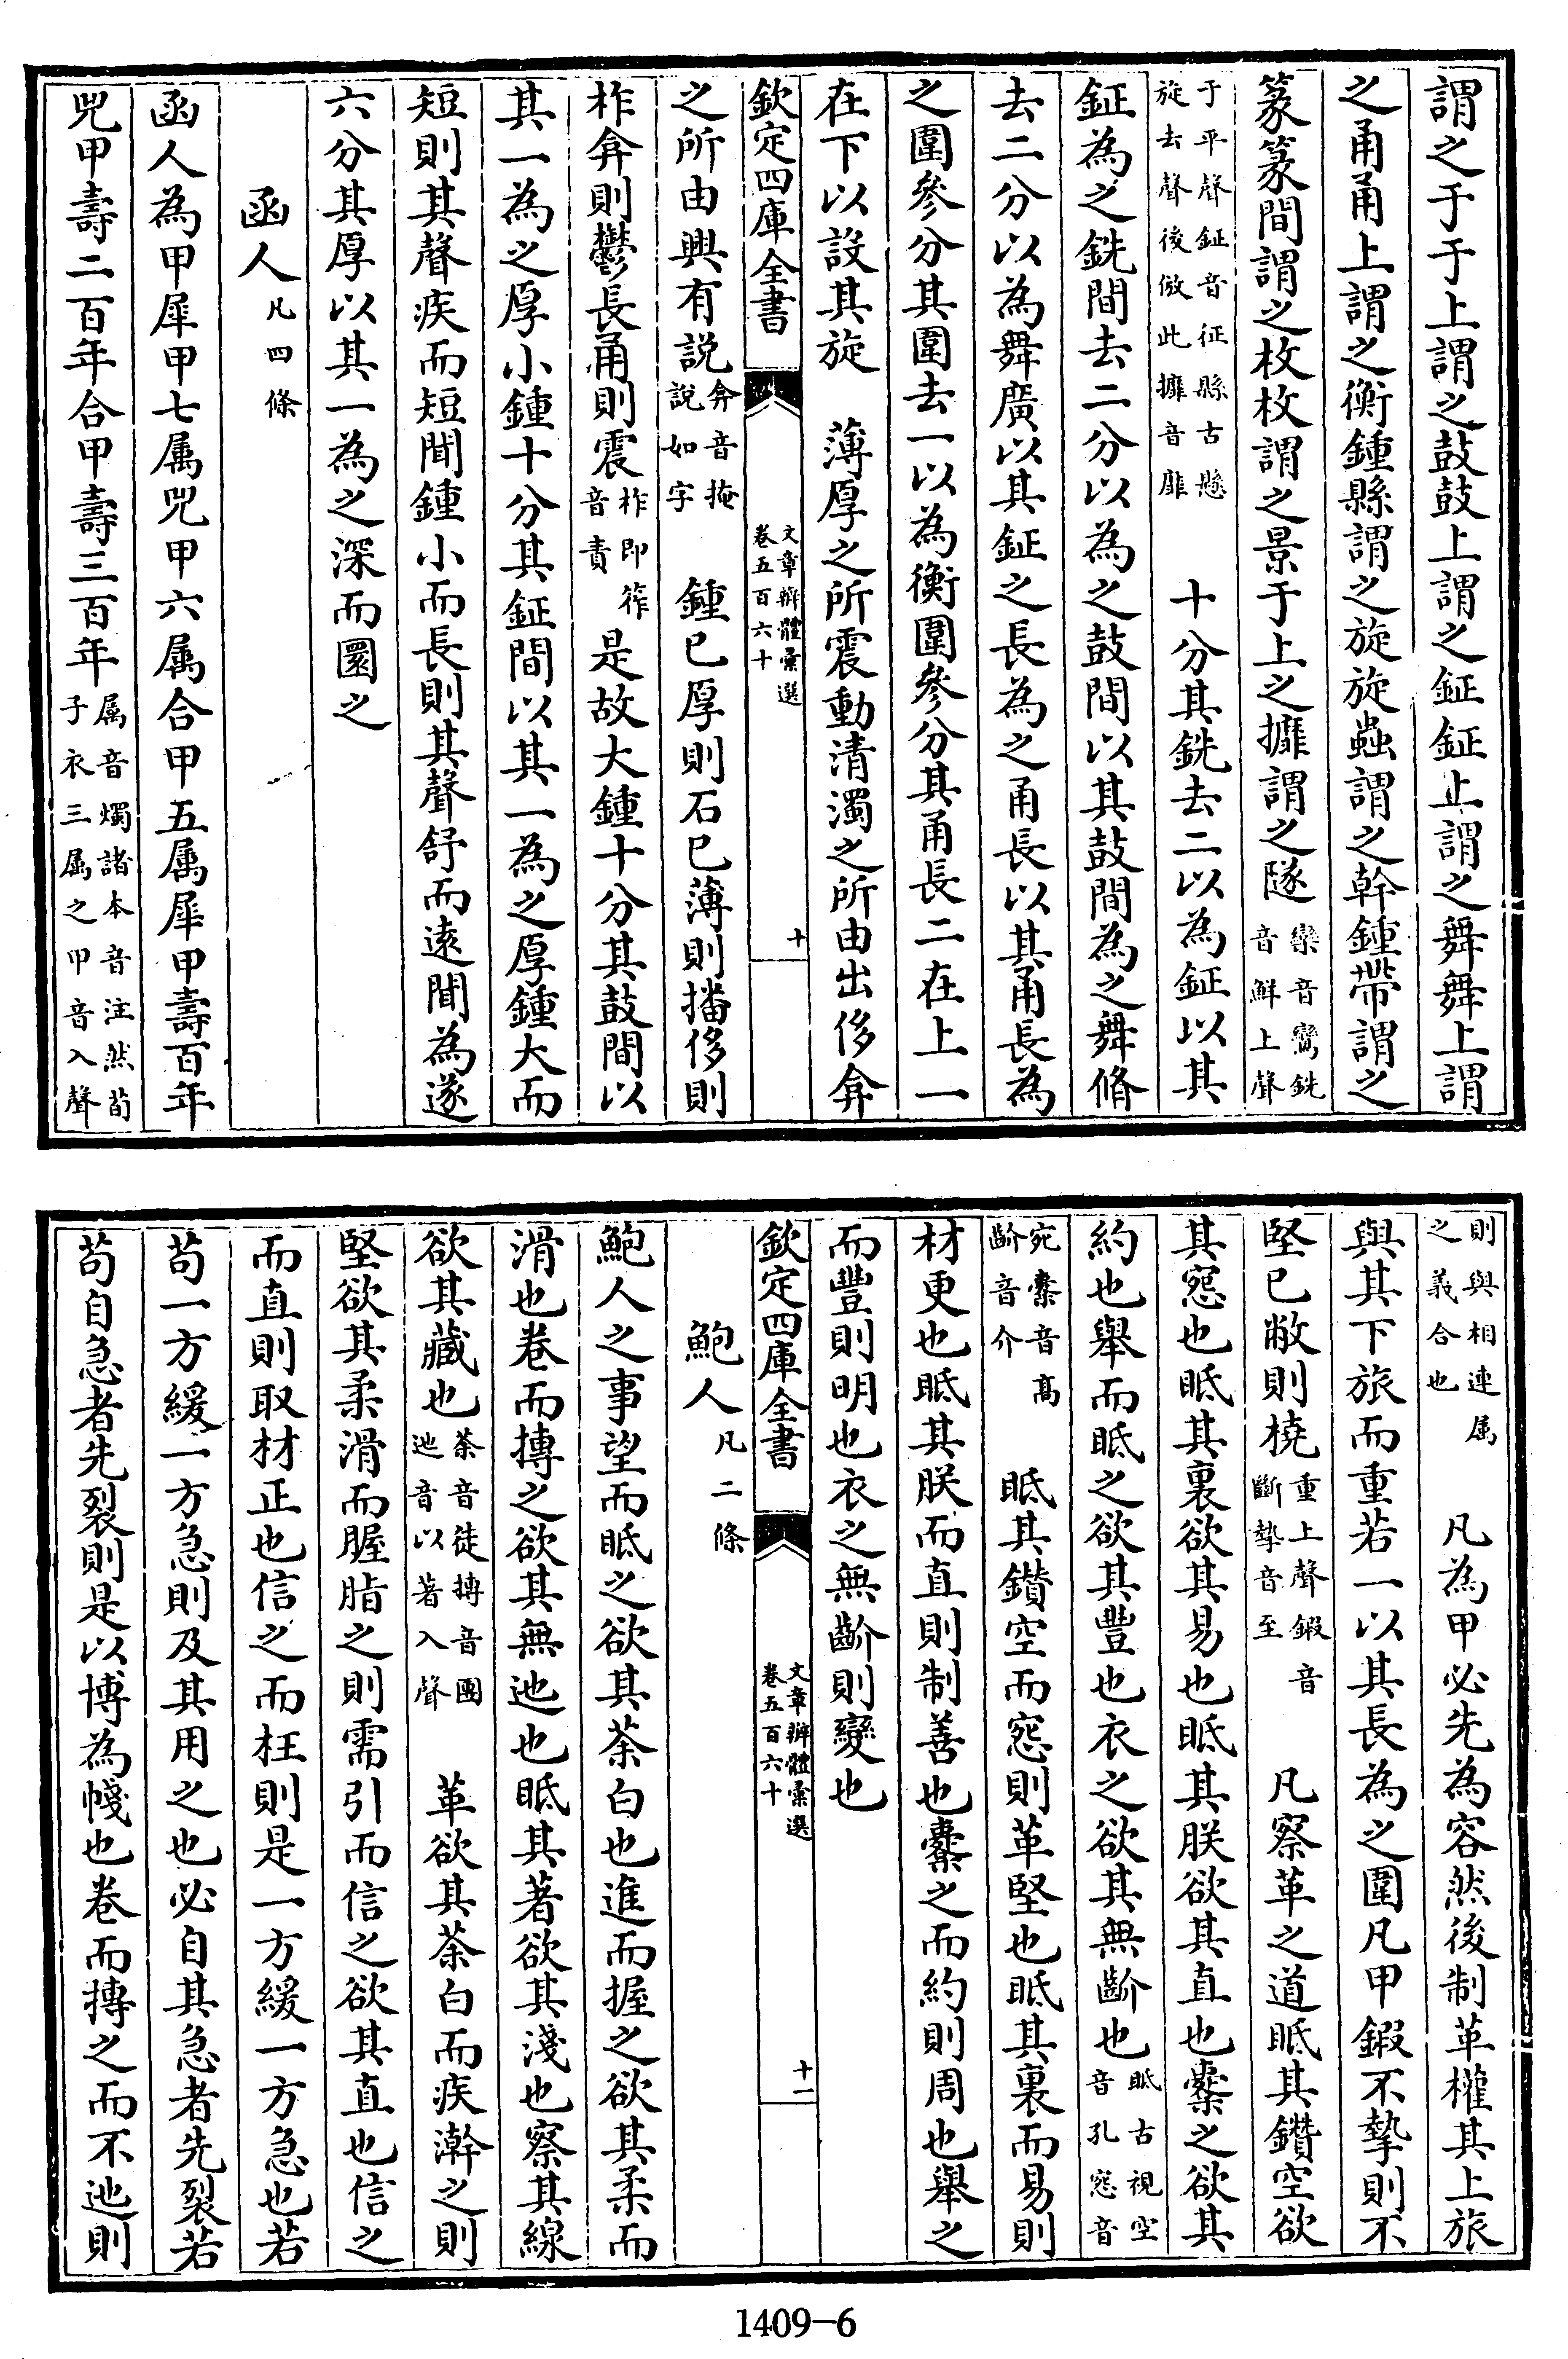 謂之于于上謂之鼓鼓上謂之鉦鉦上謂之舞舞上謂
之甬甬上謂之衡鍾縣謂之旋旋蟲謂之幹鍾帶謂之
篆篆間謂之枚枚謂之景于上之攠謂之隧欒音鸞銑音鮮上聲
于平聲鉦音征縣古懸旋去聲後倣此攠音靡 十分其銑去二以為鉦以其
鉦為之銑間去二分以為之鼓間以其鼓間為之舞脩
去二分以為舞廣以其鉦之長為之甬長以其甬長為
之圍參分其圍去一以為衡圍參分其甬長二在上一
在下以設其旋 薄厚之所震動清濁之所由出侈弇
欽定四庫全書 文章辨體彙選 卷五百六十 十
之所由興有説弇音掩說如字 鍾已厚則石已薄則播侈則
柞弇則鬱長甬則震柞即筰音責是故大鍾十分其鼓間以
其一為之厚小鍾十分其鉦間以其一為之厚鍾大而
短則其聲疾而短聞鍾小而長則其聲舒而遠聞為遂
六分其厚以其一為之深而圜之
函人凡四條
函人為甲犀甲七属兕甲六属合甲五属犀甲壽百年
兕甲壽二百年合甲壽三百年属音燭諸本音注然荀子衣三属之甲音入聲
則與相連属之義合也 凡為甲必先為容然後制革權其上旅
與其下旅而重若一以其長為之圍凡甲鍜不摯則不
堅已敝則橈重上聲鍜音斷摯音至 凡察革之道眡其鑽空欲
其窓也眡其裏欲其易也眡其朕欲其直也櫜之欲其
約也舉而眡之欲其豐也衣之欲其無齘也眡古視空音孔窓音
宛櫜音高齘音介 眡其鑽空而窓則革堅也眡其裏而易則
材更也眡其朕而直則制善也櫜之而約則周也舉之
而豐則明也衣之無齘則變也
欽定四庫全書 文章辨體彙選 卷五百六十 十一
鮑人凡二條
鮑人之事望而眡之欲其荼白也進而握之欲其柔而
滑也卷而摶之欲其無迆也眡其著欲其淺也察其線
欲其藏也荼音徒摶音團迆音以著入聲 革欲其荼白而疾澣之則
堅欲其柔滑而腛脂之則需引而信之欲其直也信之
而直則取材正也信之而枉則是一方緩一方急也若
苟一方緩一方急則及其用之也必自其急者先裂若
苟自急者先裂則是以博為帴也卷而摶之而不迆則
1409-6